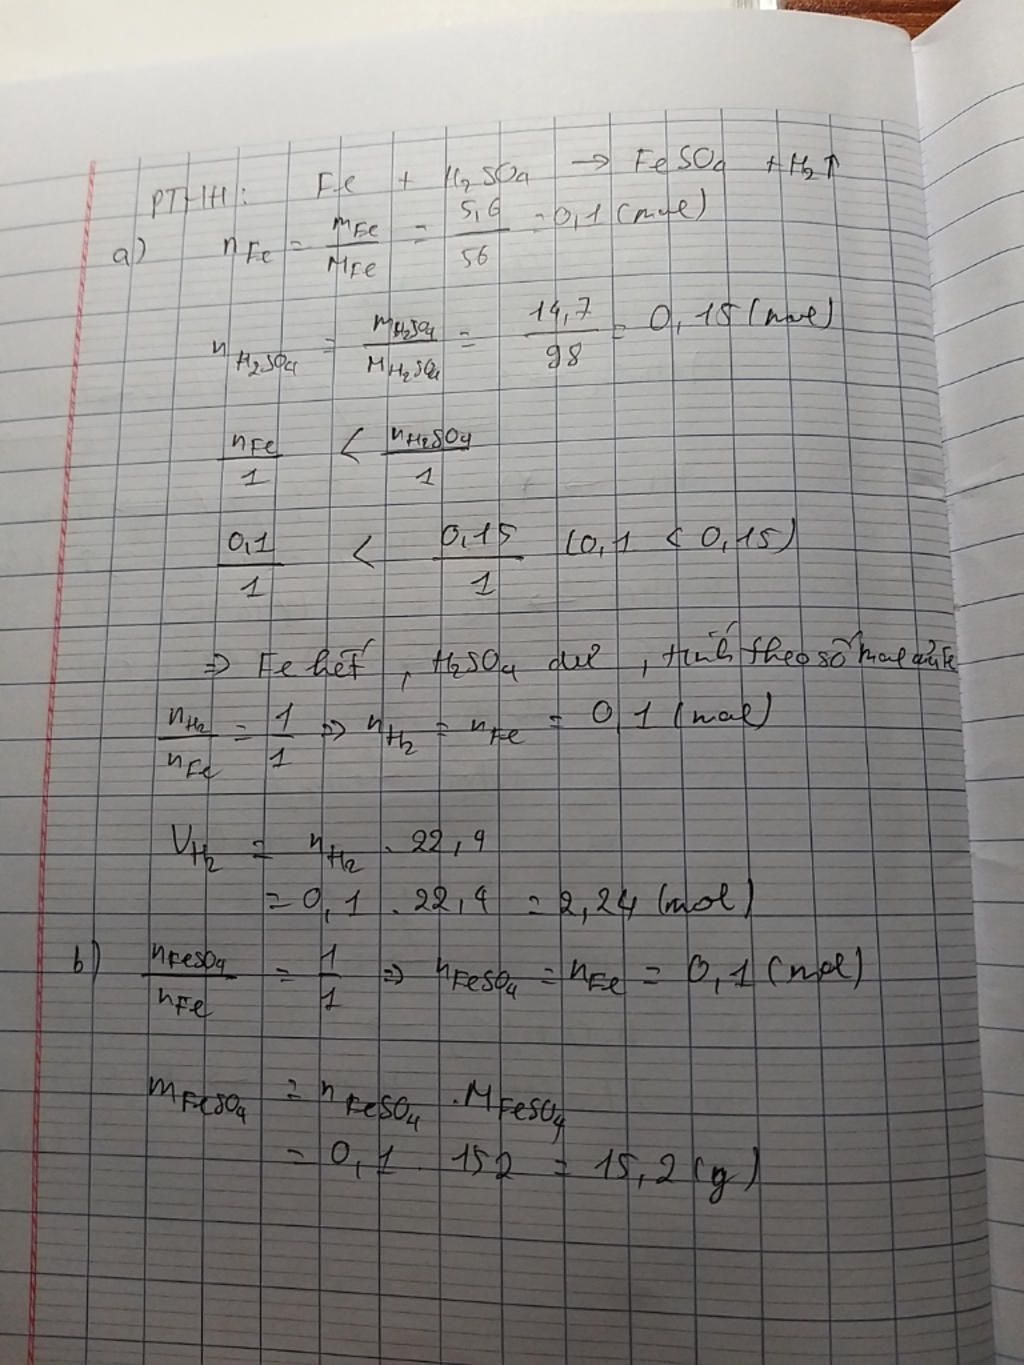 PTHH: Fe + H₂SO₄ → FeSO₄ + H₂↑
a) n Fe = mFe/MFe = 5,6/56 = 0,1 (mol)
n H₂SO₄ = mH₂SO₄/MH₂SO₄ = 14,7/98 = 0,15 (mol)
nFe/1 < nH₂SO₄/1
0,1/1 < 0,15/1 (0,1 < 0,15)
⇒ Fe hết, H₂SO₄ dư, tính theo số mol của Fe
nH₂/nFe = 1/1 ⇒ nH₂ = nFe = 0,1 (mol)
VH₂ = nH₂ . 22,4
= 0,1 . 22,4 = 2,24 (mol)
b) nFeSO₄/nFe = 1/1 ⇒ nFeSO₄ = nFe = 0,1 (mol)
mFeSO₄ = nFeSO₄ . MFeSO₄
= 0,1 . 152 = 15,2 (g)